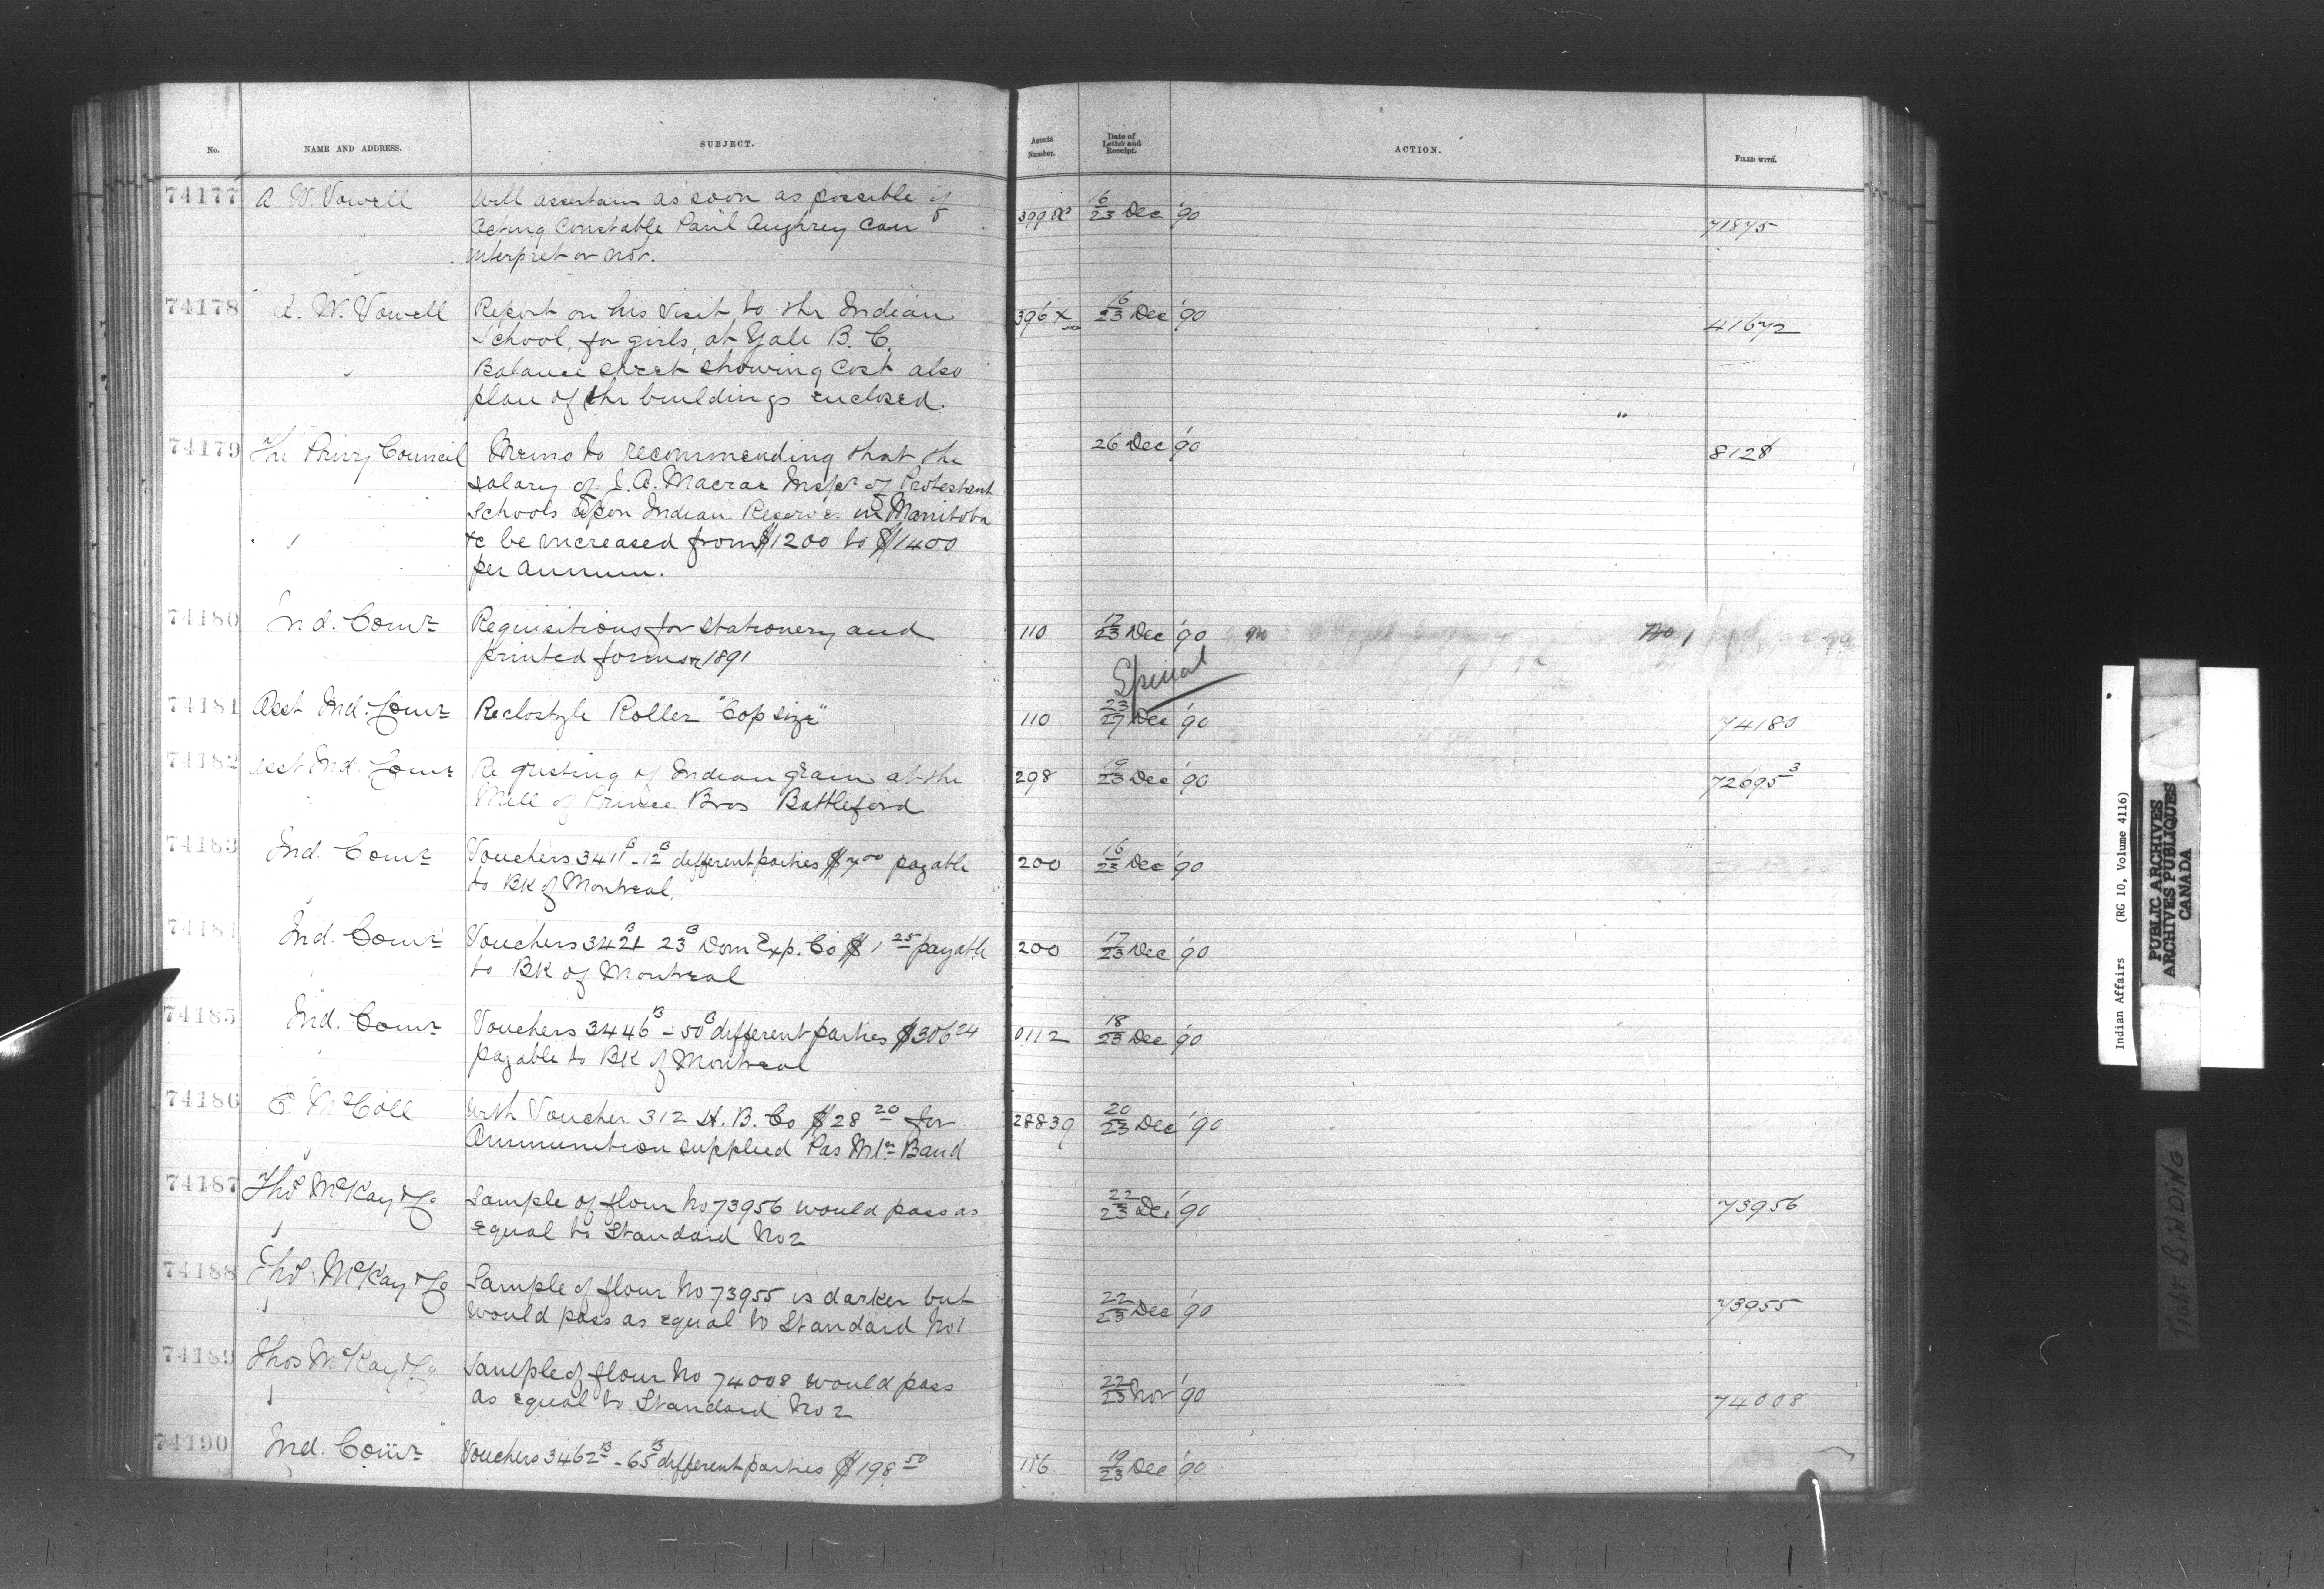 No. NAME AND ADDRESS. SUBJECT. Agents Number. Date of Letter and Receipt. ACTION. FILED WITH.
74177 A. W. Vowell Will ascertain as soon as possible if 399 16/23 Dec '90 71875
Acting Constable Paul Aughrey can
interpret or not.
74178 A. W. Vowell Report on his visit to the Indian 396 X 16/23 Dec '90 41672
School, for girls, at Yale B. C.
Balance sheet showing cost also
plan of the buildings enclosed.
74179 The Privy Council Memo to recommending that the 26 Dec '90 8128
salary of J. A. Macrae Inspr of Protestant
Schools upon Indian Reserve in Manitoba
&c be increased from $1200 to $1400
per annum.
74180 Ind. Comr Requisitions for stationery and 110 17/23 Dec '90
printed forms 1891
Special
74181 Asst Ind. Comr Reclostyle Roller "Cop size" 110 23/27 Dec '90 74180
74182 Asst Ind. Comr Re gristing of Indian grain at the 298 19/23 Dec '90 72695 3
Mill of Prince Bros Battleford
74183 Ind. Comr Vouchers 3411 B - 12 B different parties $7 00 payable 200 16/23 Dec '90
to BK of Montreal
74184 Ind. Comr Vouchers 3421 B 23 B Dom Exp. Co $1 25 payable 200 17/23 Dec '90
to BK of Montreal
74185 Ind. Comr Vouchers 3446 B - 50 B different parties $306 24 0112 18/23 Dec '90
payable to BK of Montreal
74186 E. McColl With Voucher 312 H. B. Co $28 20 for 28839 20/23 Dec '90
Ammunition supplied Pas Mtn Band
74187 Thos McKay & Co Sample of flour No 73956 would pass as 22/23 Dec '90 73956
equal to Standard No 2
74188 Thos McKay & Co Sample of flour No 73955 is darker but 22/23 Dec '90 73955
would pass as equal to Standard No 1
74189 Thos McKay & Co Sample of flour No 74008 would pass 22/23 Nov '90 74008
as equal to Standard No 2
74190 Ind. Comr Vouchers 3462 B - 65 B different parties $198 50 116 19/23 Dec '90
Indian Affairs (RG 10, Volume 4116)
PUBLIC ARCHIVES
ARCHIVES PUBLIQUES
CANADA
TIGHT BINDING